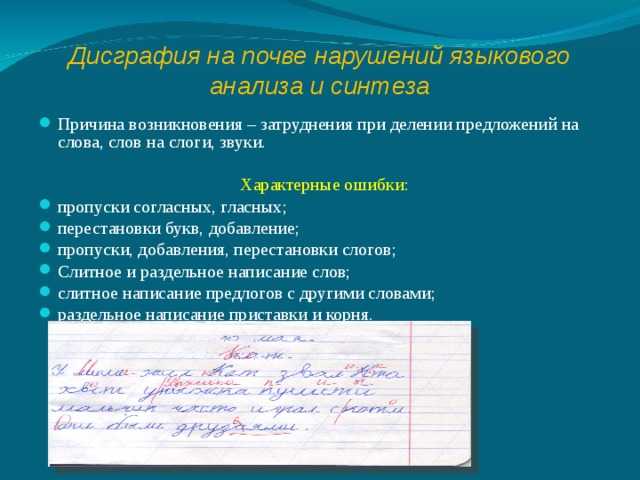 Дисграфия на почве нарушений языкового
анализа и синтеза
Причина возникновения – затруднения при делении предложений на
слова, слов на слоги, звуки.
Характерные ошибки:
пропуски согласных, гласных;
перестановки букв, добавление;
пропуски, добавления, перестановки слогов;
Слитное и раздельное написание слов;
слитное написание предлогов с другими словами;
раздельное написание приставки и корня.
мая.
Кот.
У жил Кот звал
хвост пушисти
мальчик часто играл
были друзями.